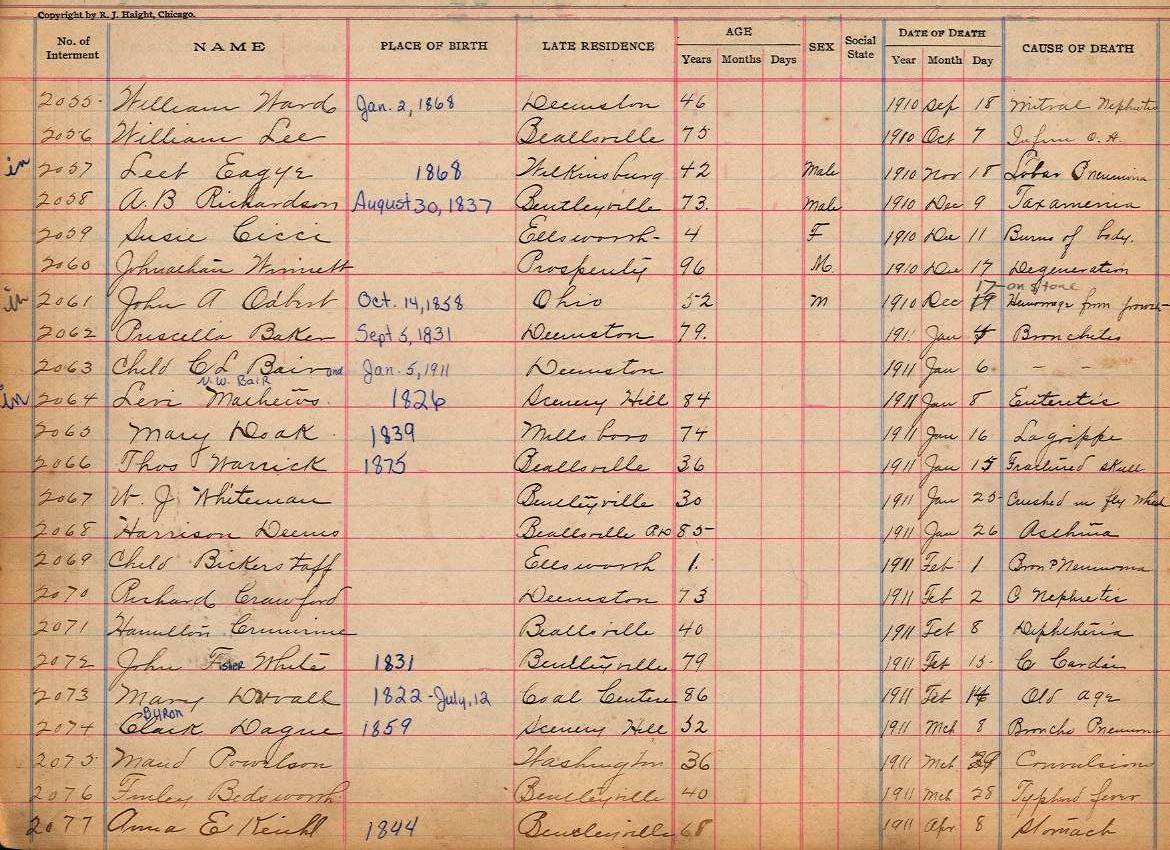 Copyright by R. J. Haight, Chicago.
No. of Interment NAME PLACE OF BIRTH LATE RESIDENCE AGE SEX Social State DATE OF DEATH CAUSE OF DEATH
Years Months Days Year Month Day
2055 William Ward Jan. 2, 1868 Deemston 46 1910 Sep 18 Mitral Nephritis
2056 William Lee Beallsville 75 1910 Oct 7
in 2057 Leet Eagye 1868 Wilkinsburg 42 Male 1910 Nov 18 Lobar Pneumonia
2058 A. B Richardson August 30, 1837 Bentleyville 73. Male 1910 Dec 9
2059 Susie Cicci Ellsworth 4 F 1910 Dec 11 Burns of body.
2060 Johnathan Winnett Prosperity 96 M. 1910 Dec 17 Degeneration
17 - on stone
in 2061 John A Odbert Oct. 14, 1858 Ohio 52 M 1910 Dec 19 Hemorrage from
2062 Priscella Baker Sept 5, 1831 Deemston 79. 191. Jan 4 Bronchitis
2063 Child C L Bair and Jan. 5, 1911 Deemston 1911 Jan 6 - -
N.W. BAIR
in 2064 Levi Mathews. 1826 Scenery Hill 84 1911 Jan 8 Enteretis
2065 Mary Doak 1839 Millsboro 74 1911 Jan 16 Lagrippe
2066 Thos Warrick 1875 Beallsville 36 1911 Jan 15 Fractured skull
2067 W. J Whiteman Bentleyville 30 1911 Jan 25 Crushed in fly wheel
2068 Harrison Deems Beallsville RD 85 1911 Jan 26 Asthma
2069 Child Bickerstaff Ellsworth 1. 1911 Feb 1 Bron Pneumonia
2070 Richard Crawford Deemston 73 1911 Feb 2 C Nephretis
2071 Hamilton Crumrine Beallsville 40 1911 Feb 8 Diphtheria
2072 John Fisher White 1831 Bentleyville 79 1911 Feb 15 C Cardia
2073 Mary Duvall 1822 - July, 12 Coal Center 86 1911 Feb 14 Old age
BYRON
2074 Clark Dague 1859 Scenery Hill 52 1911 Mch 8 Broncho Pneumonia
2075 Maud Powelson Washington 36 1911 Mch. Convulsions
2076 Finley Bedsworth Bentleyville 40 1911 Mch 28 Typhoid fever
2077 Anna E Keihl 1844 Bentleyville 68 1911 Apr 8 Stomach